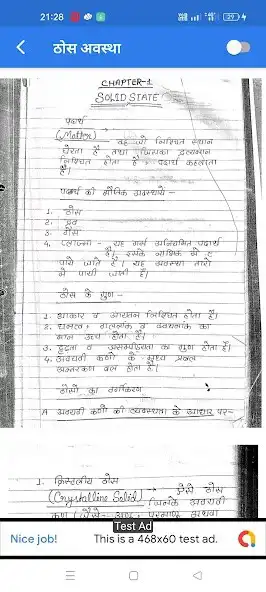 21:28
39
ठोस अवस्था
CHAPTER-1
SOLID STATE
पदार्थ
(Matter) → वह जो निश्चित स्थान
घेरता है तथा जिसका द्रव्यमान
निश्चित होता है, पदार्थ कहलाता
है।
पदार्थ की भौतिक अवस्थाये -
1. ठोस
2. द्रव
3. गैस
4. प्लाज्मा - यह गर्म पदार्थ
है। इसके नाभिक में
पाये जाते हैं। यह अवस्था तारों
में पायी जाती है।
ठोस के गुण -
1. आकार व आयतन निश्चित होता है।
2. घनत्व, गलनांक व क्वथनांक का
मान उच्च होता है।
3. दृढ़ता व असम्पीड्यता का गुण होता है।
4. अवयवी कणों के मध्य प्रबल
आकर्षण बल होता है।
ठोसों का वर्गीकरण
A अवयवी कणों की व्यवस्था के आधार पर-
1. क्रिस्टलीय ठोस
(Crystalline Solid) → ऐसे ठोस
जिनके अवयवी
कण (जैसे- अणु, परमाणु अथवा
Test Ad
Nice job!
This is a 468x60 test ad.